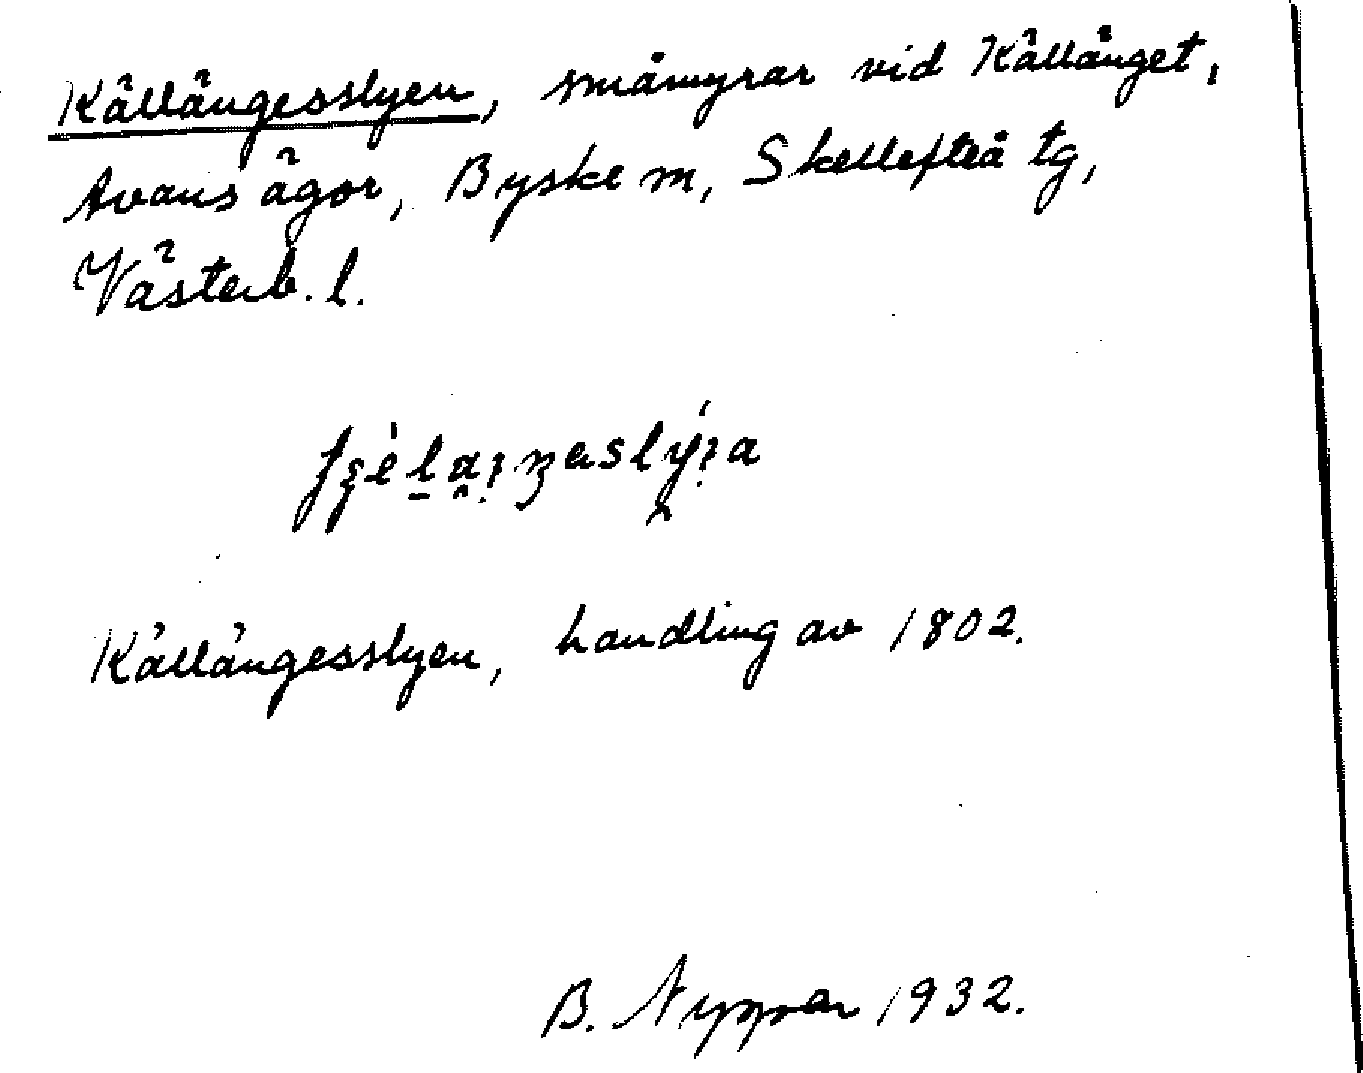 Källängesslyen, småmyrar vid Källänget,
Avans ägor, Byske m, Skellefteå tg,
Västerb. l.
Källängesslyen, handling av 1802.
B. Nyman 1932.